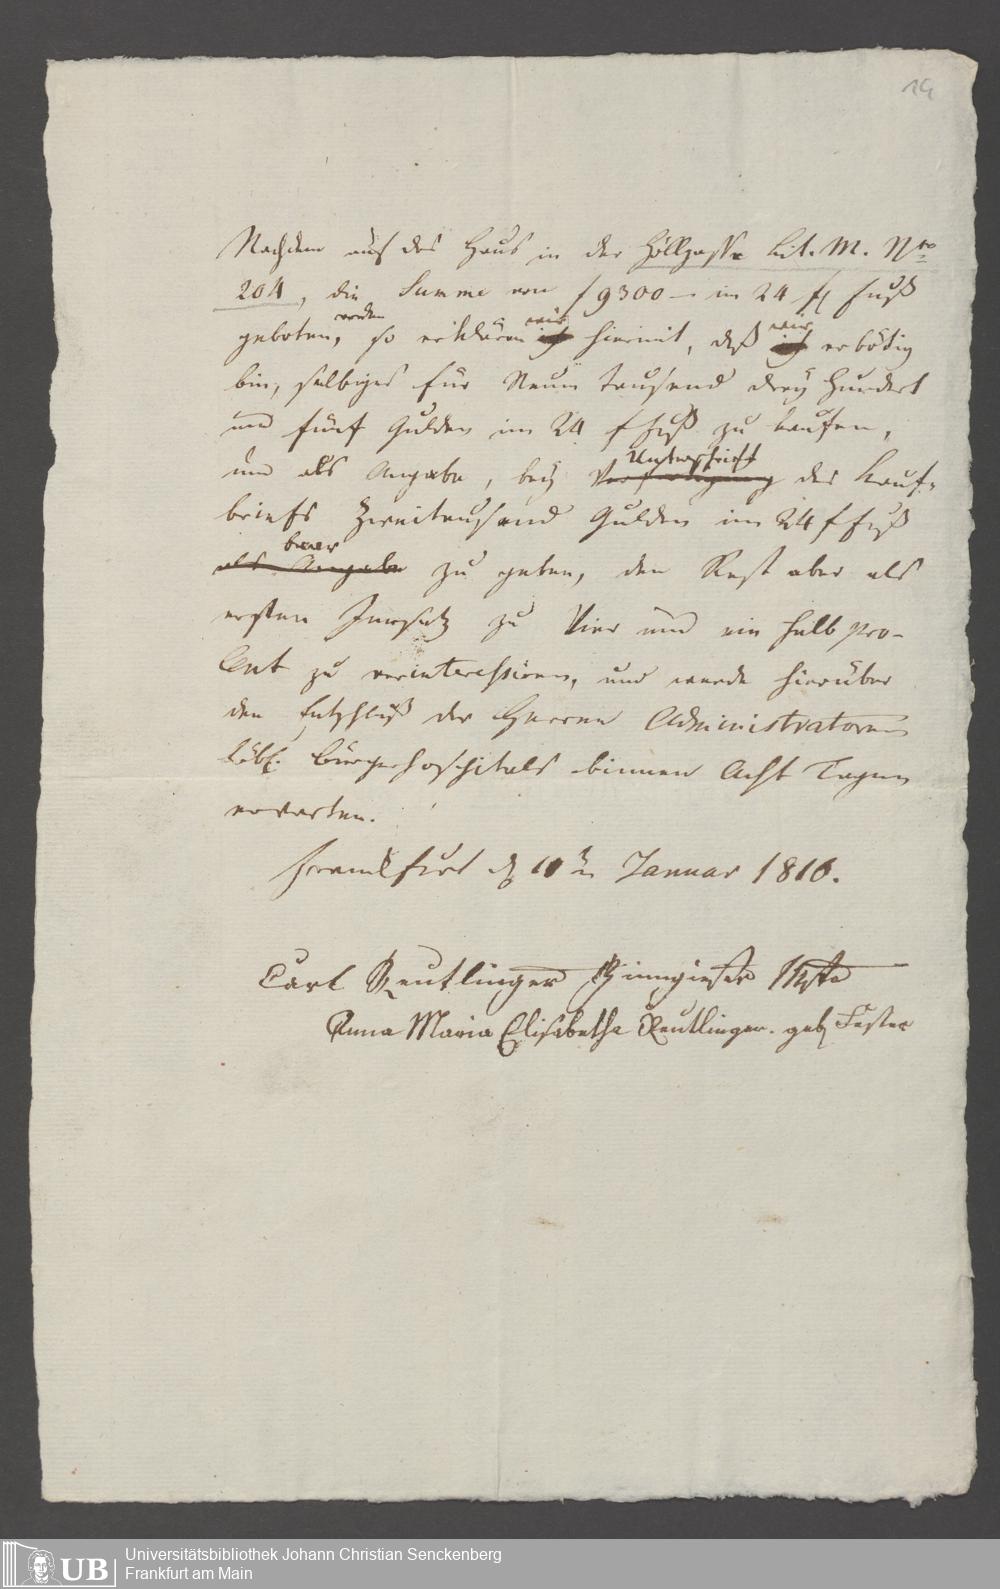 19
Nachdem auf das Haus in der Höllgasse Lit. M. Nto
204, die Summe von f 9300 – im 24 fl Fuß
worden wir wir
geboten, so erklären ich hiermit, daß ich erbötig
bin, selbiges für Neun tausend drey hundert
und fünf Gulden im 24 f Fuß zu kaufen,
Unterschrift
und als Angabe, bey Verfertigung des Kauf-
briefs Zweitausend Gulden im 24 f Fuß
baar
als Angabe zu geben, den Rest aber als
ersten Insatz zu Vier und ein halb pro-
Cent zu verinteressiren, und werde hierüber
den Entschluß der Herren Administratoren
löbl. Bürgerhospitals binnen Acht Tagen
erwarten.
Frankfurt d 10n Januar 1816.
Carl Reutlinger Zinngießer Mstr
Anna Maria Elisabetha Reutlinger. geb Fester
UB
Universitätsbibliothek Johann Christian Senckenberg
Frankfurt am Main